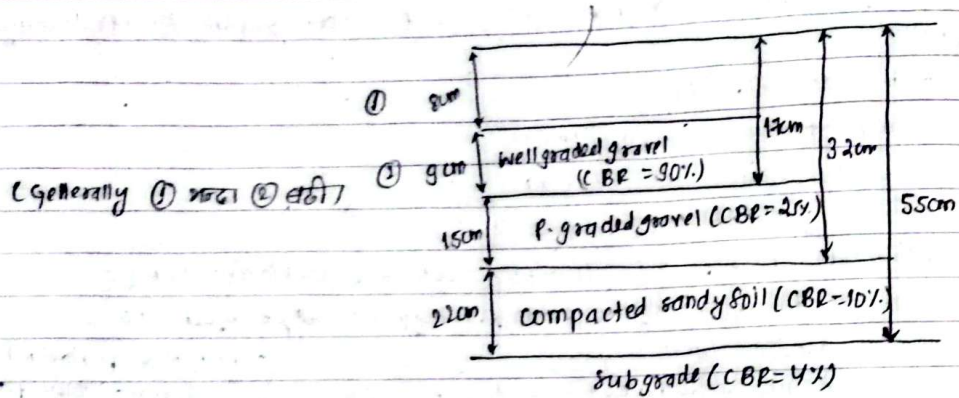 ① 8cm
② 9cm well graded gravel
(CBR = 90%)
17cm
32cm
55cm
(Generally ① भन्दा ② बढी)
15cm P. graded gravel (CBR = 25%)
22cm compacted sandy soil (CBR = 10%)
subgrade (CBR = 4%)